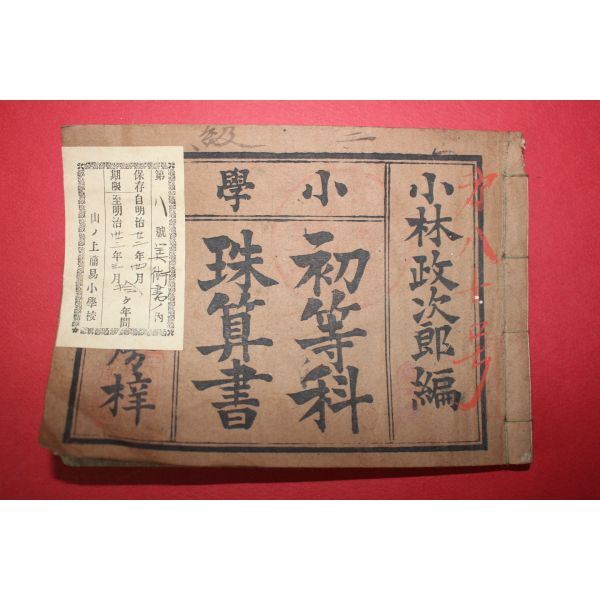 二級
小林政次郎編
小學
初等科
珠算書
梓
第八號 算術書ノ内
保存 自明治廿二年四月
期限 至明治廿二年三月 拾ヶ年間
山ノ上簡易小學校